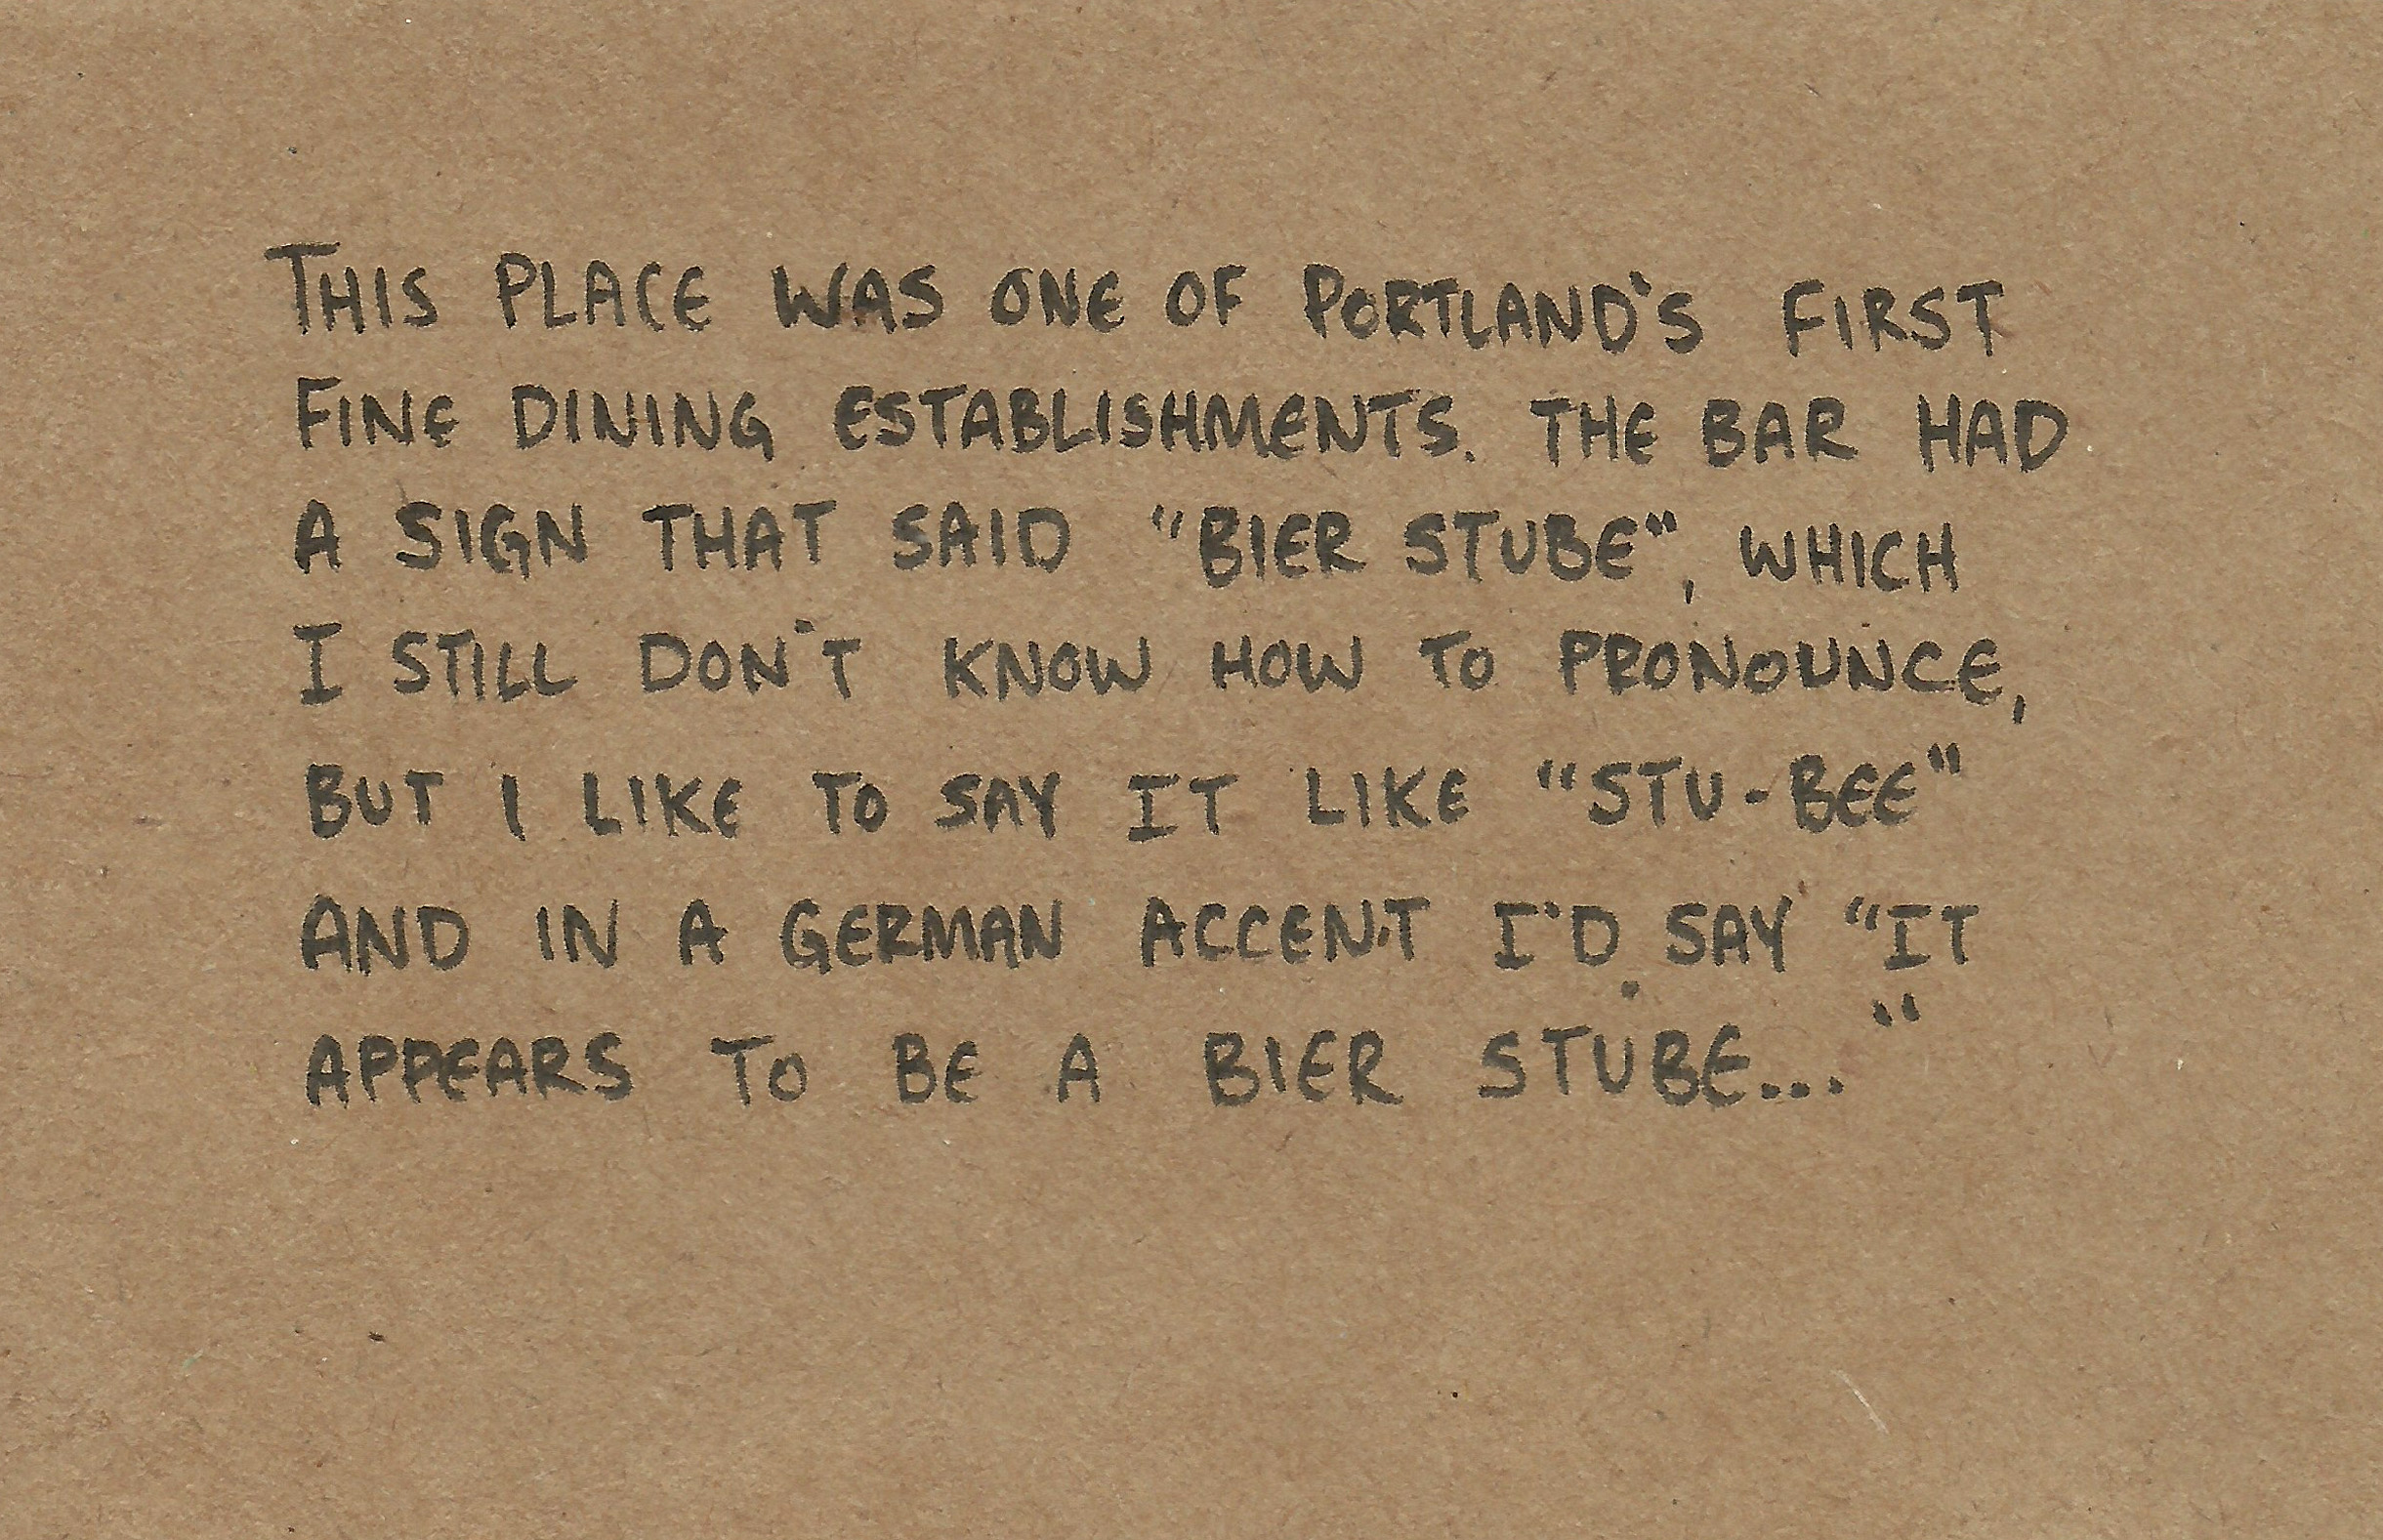 THIS PLACE WAS ONE OF PORTLAND'S FIRST
FINE DINING ESTABLISHMENTS. THE BAR HAD
A SIGN THAT SAID "BIER STUBE", WHICH
I STILL DON'T KNOW HOW TO PRONOUNCE,
BUT I LIKE TO SAY IT LIKE "STU-BEE"
AND IN A GERMAN ACCENT I'D SAY "IT
APPEARS TO BE A BIER STUBE..."